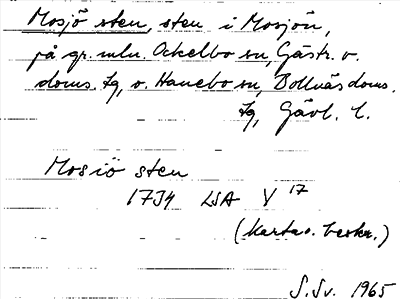 Mosjö sten, sten i Mosjön,
på gr. mln. Ockelbo sn, Gästr. v.
doms. tg, o. Hanebo sn, Bollnäs doms.
tg, Gävl. l.
Mosiö sten
1734 LSA V 17
(karta o. beskr.)
S.Sv. 1965